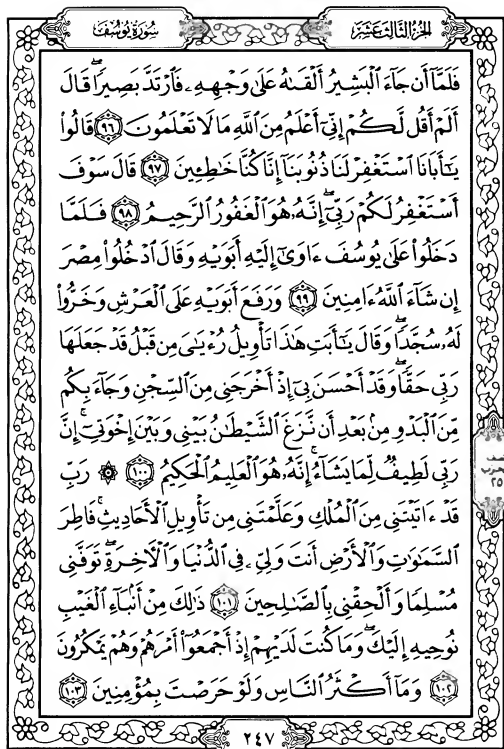 سُورَةُ يُوسُفَ
الجُزْءُ الثَّالِثَ عَشَرَ
فَلَمَّآ أَن جَآءَ ٱلْبَشِيرُ أَلْقَىٰهُ عَلَىٰ وَجْهِهِۦ فَٱرْتَدَّ بَصِيرًاۖ قَالَ
أَلَمْ أَقُل لَّكُمْ إِنِّىٓ أَعْلَمُ مِنَ ٱللَّهِ مَا لَا تَعْلَمُونَ ٩٦ قَالُوا۟
يَـٰٓأَبَانَا ٱسْتَغْفِرْ لَنَا ذُنُوبَنَآ إِنَّا كُنَّا خَـٰطِـِٔينَ ٩٧ قَالَ سَوْفَ
أَسْتَغْفِرُ لَكُمْ رَبِّىٓۖ إِنَّهُۥ هُوَ ٱلْغَفُورُ ٱلرَّحِيمُ ٩٨ فَلَمَّا
دَخَلُوا۟ عَلَىٰ يُوسُفَ ءَاوَىٰٓ إِلَيْهِ أَبَوَيْهِ وَقَالَ ٱدْخُلُوا۟ مِصْرَ
إِن شَآءَ ٱللَّهُ ءَامِنِينَ ٩٩ وَرَفَعَ أَبَوَيْهِ عَلَى ٱلْعَرْشِ وَخَرُّوا۟
لَهُۥ سُجَّدًاۖ وَقَالَ يَـٰٓأَبَتِ هَـٰذَا تَأْوِيلُ رُءْيَـٰىَ مِن قَبْلُ قَدْ جَعَلَهَا
رَبِّى حَقًّاۖ وَقَدْ أَحْسَنَ بِىٓ إِذْ أَخْرَجَنِى مِنَ ٱلسِّجْنِ وَجَآءَ بِكُم
مِّنَ ٱلْبَدْوِ مِنۢ بَعْدِ أَن نَّزَغَ ٱلشَّيْطَـٰنُ بَيْنِى وَبَيْنَ إِخْوَتِىٓۚ إِنَّ
رَبِّى لَطِيفٌ لِّمَا يَشَآءُۚ إِنَّهُۥ هُوَ ٱلْعَلِيمُ ٱلْحَكِيمُ ١٠٠ ۞ رَبِّ
قَدْ ءَاتَيْتَنِى مِنَ ٱلْمُلْكِ وَعَلَّمْتَنِى مِن تَأْوِيلِ ٱلْأَحَادِيثِۚ فَاطِرَ
ٱلسَّمَـٰوَٰتِ وَٱلْأَرْضِ أَنتَ وَلِىِّۦ فِى ٱلدُّنْيَا وَٱلْـَٔاخِرَةِۖ تَوَفَّنِى
مُسْلِمًا وَأَلْحِقْنِى بِٱلصَّـٰلِحِينَ ١٠١ ذَٰلِكَ مِنْ أَنۢبَآءِ ٱلْغَيْبِ
نُوحِيهِ إِلَيْكَۖ وَمَا كُنتَ لَدَيْهِمْ إِذْ أَجْمَعُوٓا۟ أَمْرَهُمْ وَهُمْ يَمْكُرُونَ
١٠٢ وَمَآ أَكْثَرُ ٱلنَّاسِ وَلَوْ حَرَصْتَ بِمُؤْمِنِينَ ١٠٣
٢٥
٢٤٧